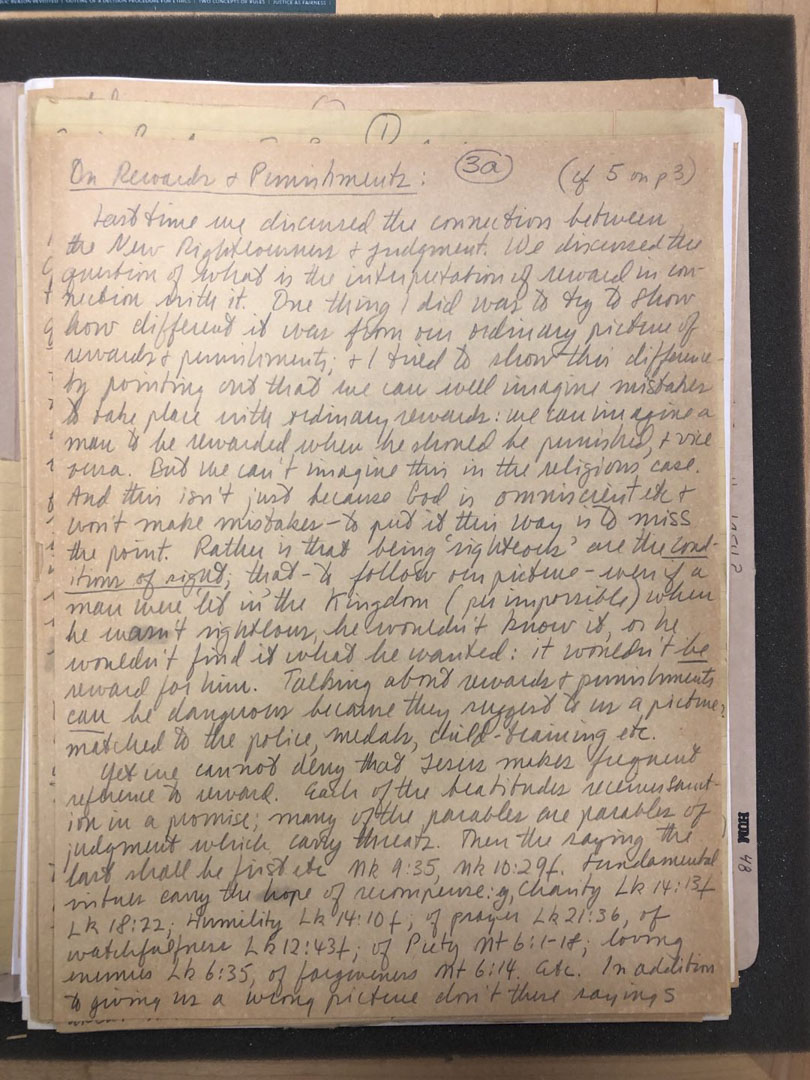 REASON REVISITED | OUTLINE OF A DECISION PROCEDURE FOR ETHICS | TWO CONCEPTS OF RULES | JUSTICE AS FAIRNESS
1
On Rewards & Punishments: 3a (cf 5 on p3)
Last time we discussed the connection between
the New Righteousness & judgment. We discussed the
question of what is the interpretation of reward in con-
nection with it. One thing I did was to try to show
how different it was from our ordinary picture of
rewards & punishments; & I tried to show this difference
by pointing out that we can well imagine mistakes
to take place with ordinary rewards: we can imagine a
man to be rewarded when he should be punished, & vice
versa. But we can't imagine this in the religious case.
And this isn't just because God is omniscient etc &
won't make mistakes – to put it this way is to miss
the point. Rather is that being 'righteous' are the cond-
itions of right, that – to follow our picture – even if a
man were let in the Kingdom (per impossible) when
he wasn't righteous, he wouldn't know it, or he
wouldn't find it what he wanted: it wouldn't be
reward for him. Talking about rewards & punishments
can be dangerous because they suggest to us a picture,
matched to the police, medals, child-training etc.
Yet we cannot deny that Jesus makes frequent
reference to reward. Each of the beatitudes receives sanct-
ion in a promise; many of the parables are parables of
judgment which carry threats. Then the saying the
last shall be first etc Mk 9:35, Mk 10:29f. Fundamental
virtues carry the hope of recompense: g, Charity Lk 14:13f
Lk 18:22; Humility Lk 14:10f; of prayer Lk 21:36, of
watchfulness Lk 12:43f; of Piety Mt 6:1-18; loving
enemies Lk 6:35, of forgiveness Mt 6:14. etc. In addition
to giving us a wrong picture don't these sayings
HOM 48